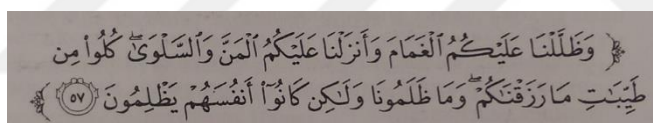 ﴿ وَظَلَّلْنَا عَلَيْكُمُ ٱلْغَمَامَ وَأَنزَلْنَا عَلَيْكُمُ ٱلْمَنَّ وَٱلسَّلْوَىٰۖ كُلُوا۟ مِن
طَيِّبَـٰتِ مَا رَزَقْنَـٰكُمْۖ وَمَا ظَلَمُونَا وَلَـٰكِن كَانُوٓا۟ أَنفُسَهُمْ يَظْلِمُونَ ٥٧ ﴾